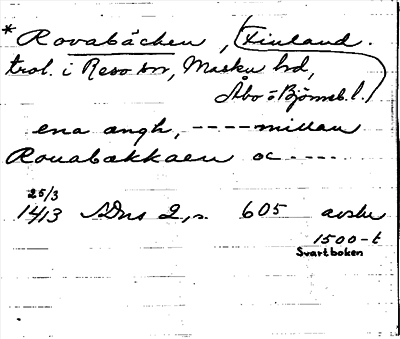 * Rovabäcken, Finland.
trol. i Reso sn, Masku hd,
Åbo o Björneb. l.
ena ængh, ---- millan
Rouabækkaen oc ----
25/3
1413 SDns 2, s. 605 avskr
1500-t
Svartboken